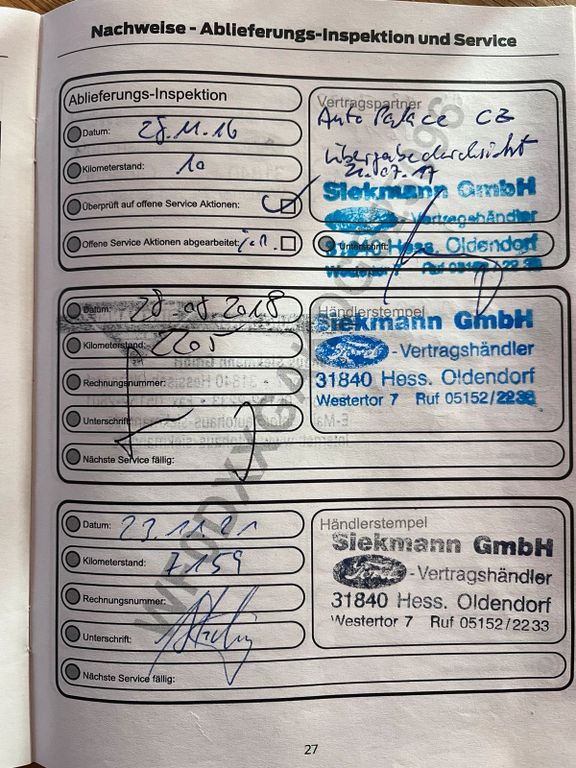 Nachweise - Ablieferungs-Inspektion und Service
Ablieferungs-Inspektion
Datum: 28.11.16
Kilometerstand: 10
Überprüft auf offene Service Aktionen:
Offene Service Aktionen abgearbeitet:
Vertragspartner
Auto Palace CB
Übergabedurchsicht
21.07.17
Siekmann GmbH
Ford - Vertragshändler
31840 Hess. Oldendorf
Westertor 7 Ruf 05152/22 33
Unterschrift:
Datum: 28.08.2018
Kilometerstand: 2205
Rechnungsnummer:
Unterschrift:
Nächste Service fällig:
Händlerstempel
Siekmann GmbH
Ford -Vertragshändler
31840 Hess. Oldendorf
Westertor 7 Ruf 05152/2233
Datum: 23.11.21
Kilometerstand: 7159
Rechnungsnummer:
Unterschrift:
Nächste Service fällig:
Händlerstempel
Siekmann GmbH
Ford -Vertragshändler
31840 Hess. Oldendorf
Westertor 7 Ruf 05152/2233
27